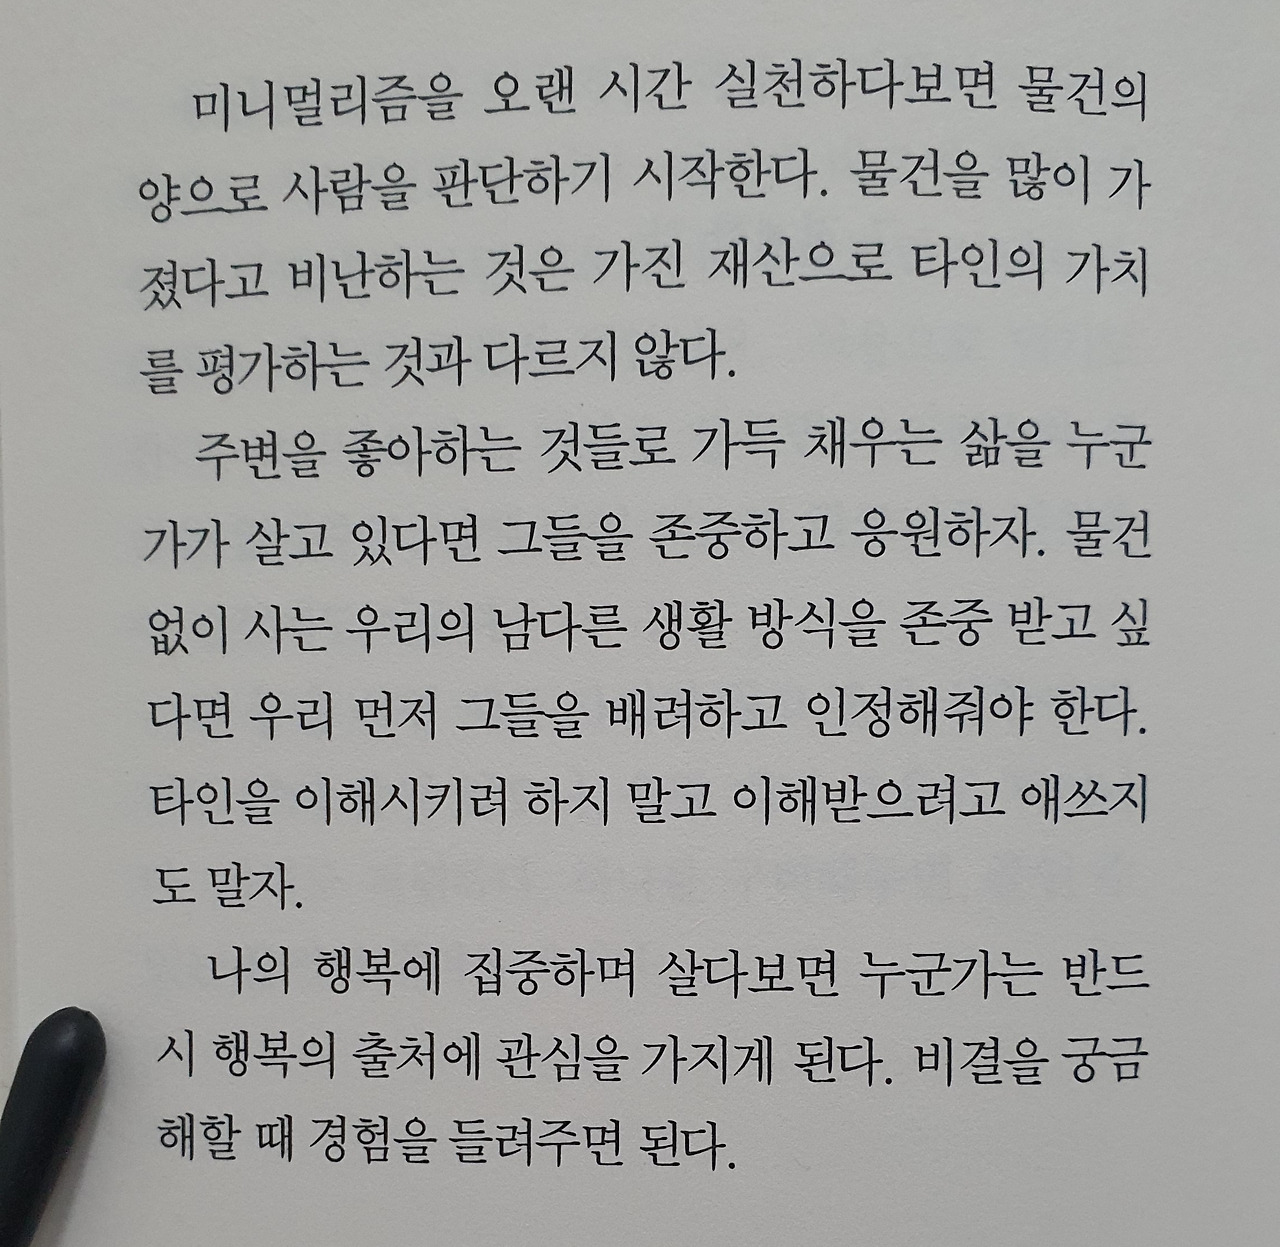 미니멀리즘을 오랜 시간 실천하다보면 물건의
양으로 사람을 판단하기 시작한다. 물건을 많이 가
졌다고 비난하는 것은 가진 재산으로 타인의 가치
를 평가하는 것과 다르지 않다.
주변을 좋아하는 것들로 가득 채우는 삶을 누군
가가 살고 있다면 그들을 존중하고 응원하자. 물건
없이 사는 우리의 남다른 생활 방식을 존중 받고 싶
다면 우리 먼저 그들을 배려하고 인정해줘야 한다.
타인을 이해시키려 하지 말고 이해받으려고 애쓰지
도 말자.
나의 행복에 집중하며 살다보면 누군가는 반드
시 행복의 출처에 관심을 가지게 된다. 비결을 궁금
해할 때 경험을 들려주면 된다.